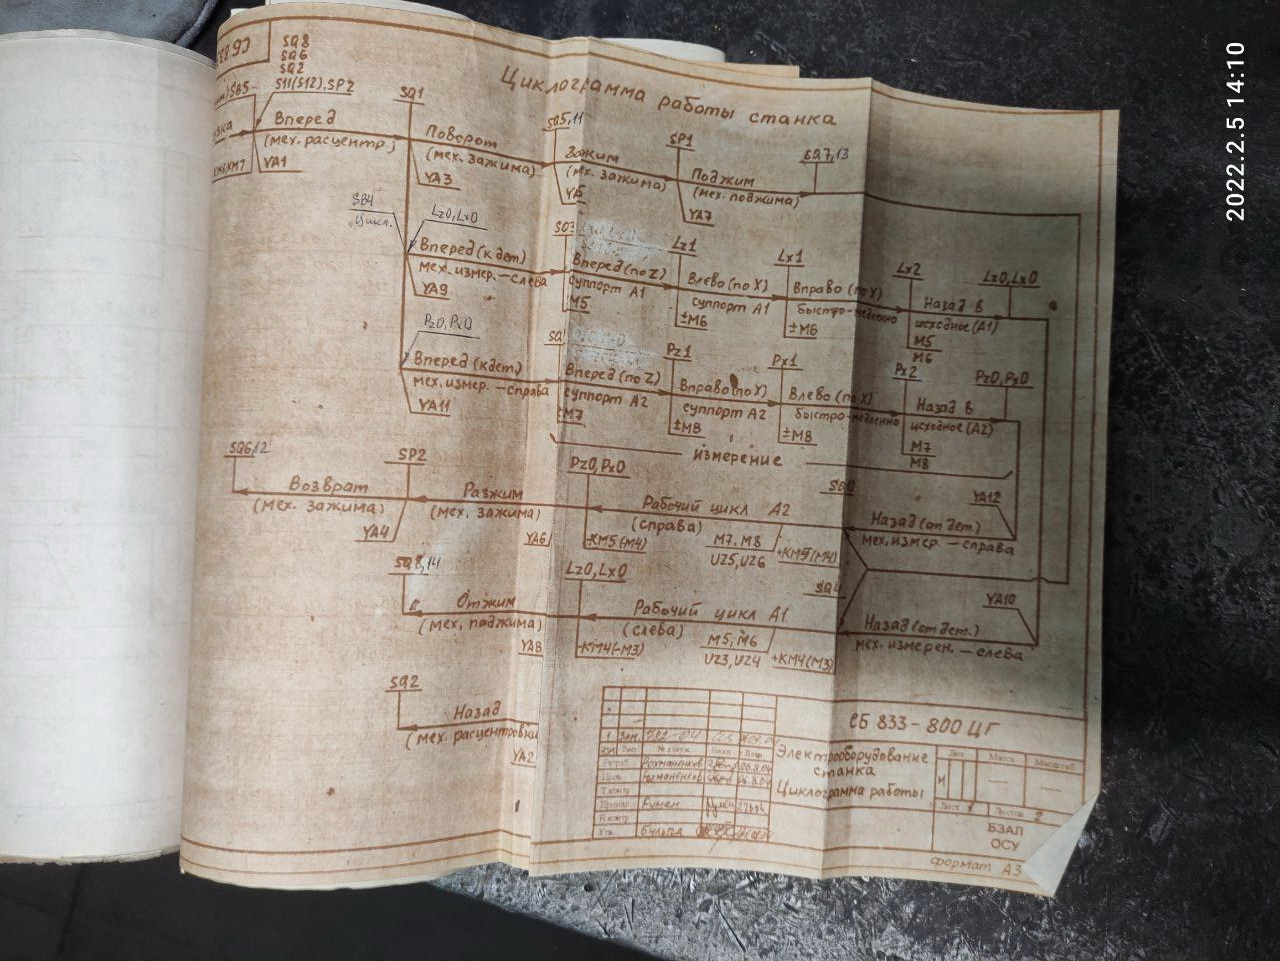 Циклограмма работы станка
SQ8
SQ6
SQ2
S11(S12), SP2
SB5
Вперед
(мех. расцентр.)
YA1
KM6, KM7
SQ1
Поворот
(мех. зажима)
YA3
SQ5,11
Зажим
(мех. зажима)
YA5
SP1
Поджим
(мех. поджима)
YA7
SQ7,13
SB4
"Цикл."
Lz0, Lx0
Вперед (к дет.)
мех. измер. – слева
YA9
SQ3
Вперед (по Z)
суппорт А1
M5
Lz1
Влево (по X)
суппорт А1
±M6
Lx1
Вправо (по X)
быстро-медленно
±M6
Lx2
Назад в
исходное (А1)
M5
M6
Lz0, Lx0
Pz0, Px0
Вперед (к дет.)
мех. измер. – справа
YA11
Вперед (по Z)
суппорт А2
±M7
Pz1
Вправо (по X)
суппорт А2
±M8
Px1
Влево (по X)
быстро-медленно
±M8
Px2
Назад в
исходное (А2)
M7
M8
Pz0, Px0
измерение
SQ6,12
Возврат
(мех. зажима)
YA4
SP2
Разжим
(мех. зажима)
YA6
Pz0, Px0
-KM5(-M4)
Рабочий цикл А2
(справа)
M7, M8
UZ5, UZ6
+KM5(M4)
Назад (от дет.)
мех. измер. – справа
YA12
SQ8,14
Отжим
(мех. поджима)
YA8
Lz0, Lx0
-KM4(-M3)
Рабочий цикл А1
(слева)
M5, M6
UZ3, UZ4
+KM4(M3)
SQ4
Назад (от дет.)
мех. измерен. – слева
YA10
SQ2
Назад
(мех. расцентровки
YA2
СБ 833-800 ЦГ
Электрооборудование
станка
Циклограмма работы
Лит.
Масса
Масштаб
И
Лист 1
Листов 2
БЗАЛ
ОСУ
формат А3
2022.2.5 14:10